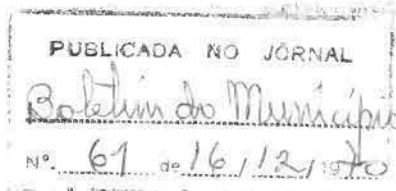 PUBLICADA NO JORNAL
Boletim do Município
Nº. 61 de 16/12/1970